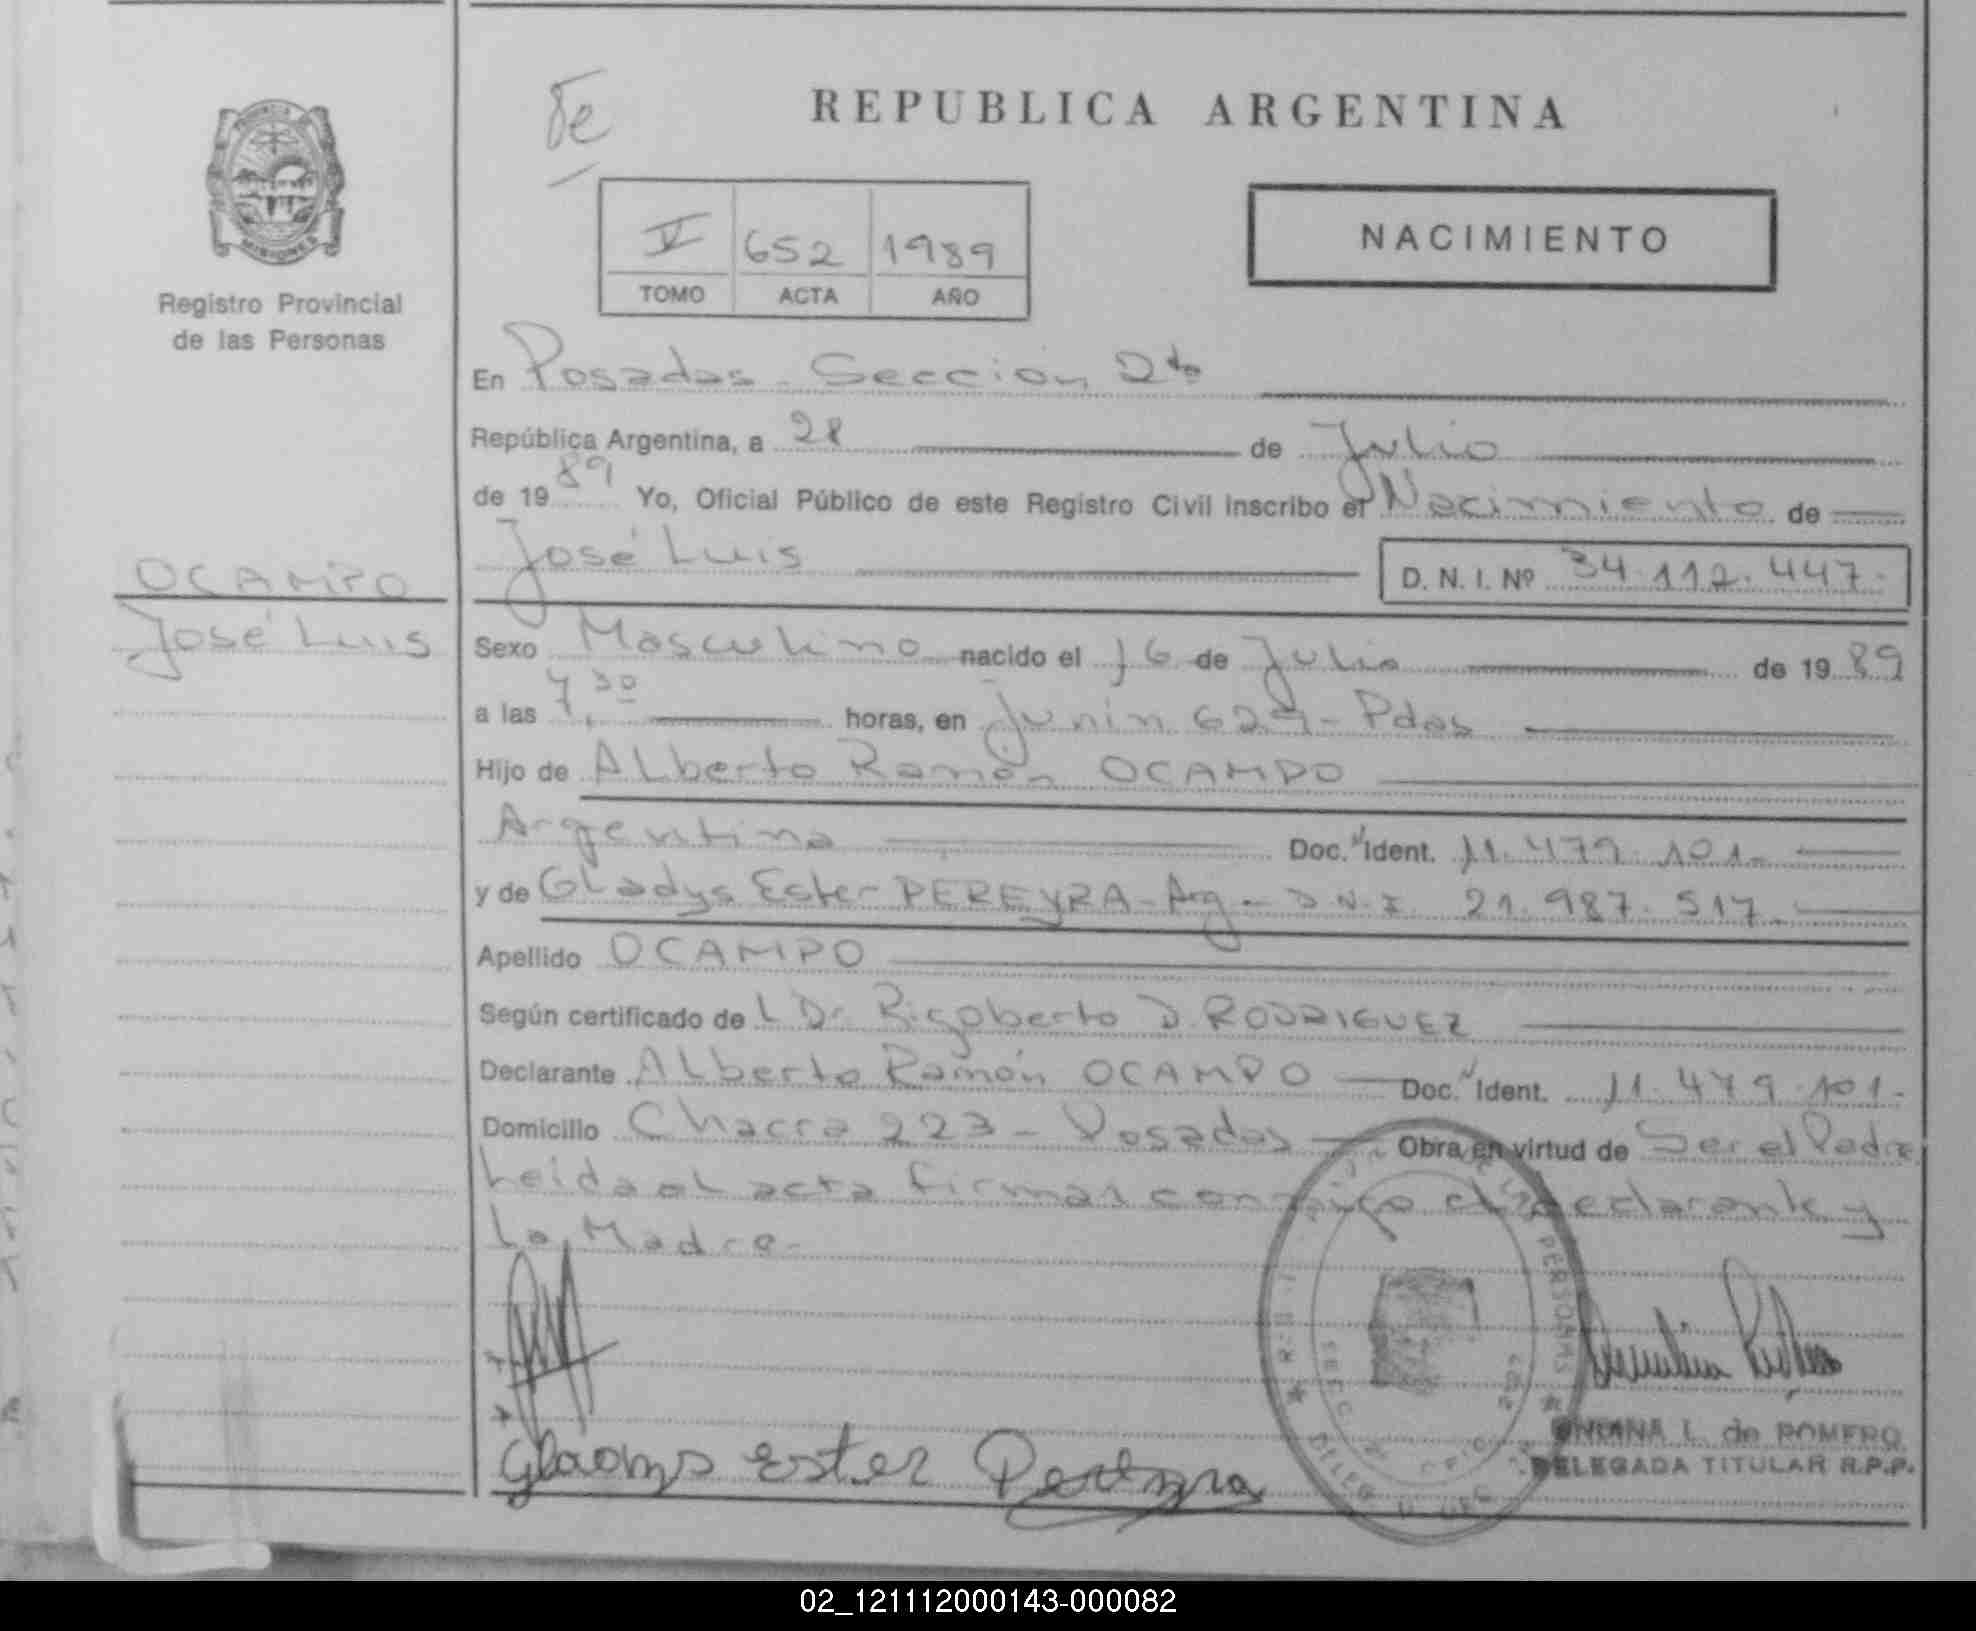 REPUBLICA ARGENTINA
PROVINCIA
MISIONES
Registro Provincial
de las Personas
V 652 1989
TOMO ACTA AÑO
NACIMIENTO
En Posadas - Sección 2da
República Argentina, a 28 de Julio
de 1989 Yo, Oficial Público de este Registro Civil inscribo el Nacimiento de
José Luis D. N. I. Nº 34.112.447.
OCAMPO
José Luis
Sexo Masculino nacido el 16 de Julio de 1989
a las 7,30 horas, en Junín 629 - Pdas
Hijo de Alberto Ramón OCAMPO
Argentina Doc. Ident. 11.479.101.
y de Gladys Ester PEREYRA - Arg - D.N.I. 21.987.517.
Apellido OCAMPO
Según certificado de L Dr. Rigoberto D. RODRIGUEZ
Declarante Alberto Ramón OCAMPO Doc. Ident. 11.479.101.
Domicilio Chacra 223 - Posadas Obra en virtud de Ser el Padre
Leida el acta firman conmigo el declarante y
la Madre.
Gladys Ester Pereyra
PERSONAS
L. de ROMERO
DELEGADA TITULAR R.P.P.
02_121112000143-000082